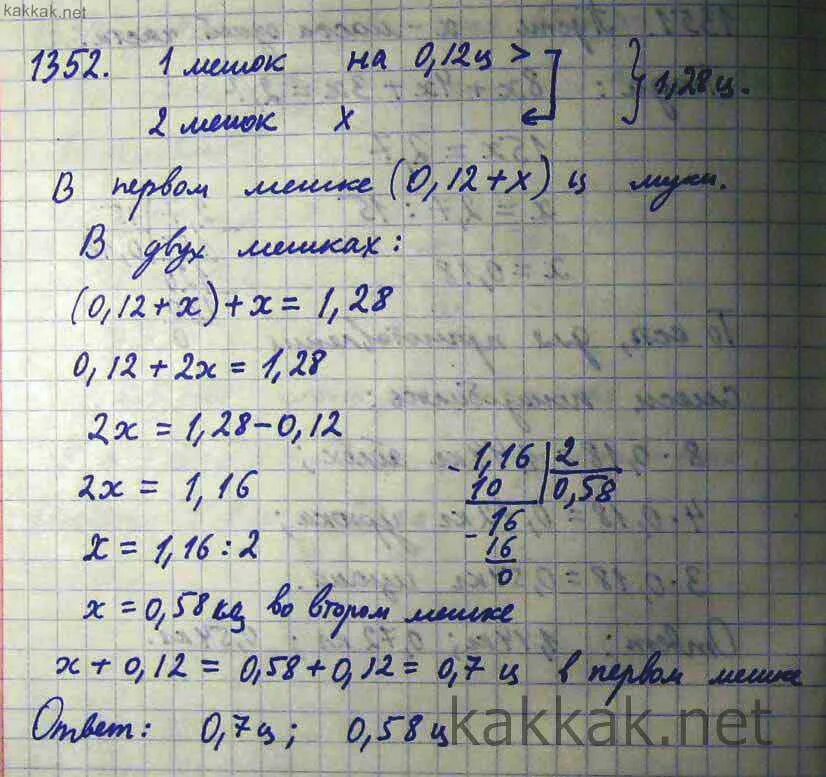 kakkak.net
1352. 1 мешок на 0,12ц > } 1,28 ц.
2 мешок х
В первом мешке (0,12+х) ц муки.
В двух мешках:
(0,12+х)+х = 1,28
0,12 + 2х = 1,28
2х = 1,28-0,12
2х = 1,16
х = 1,16 : 2
-1,16 | 2
10 0,58
-16
16
0
х = 0,58 кц во втором мешке
х + 0,12 = 0,58 + 0,12 = 0,7 ц в первом мешке
Ответ: 0,7ц; 0,58ц
kakkak.net